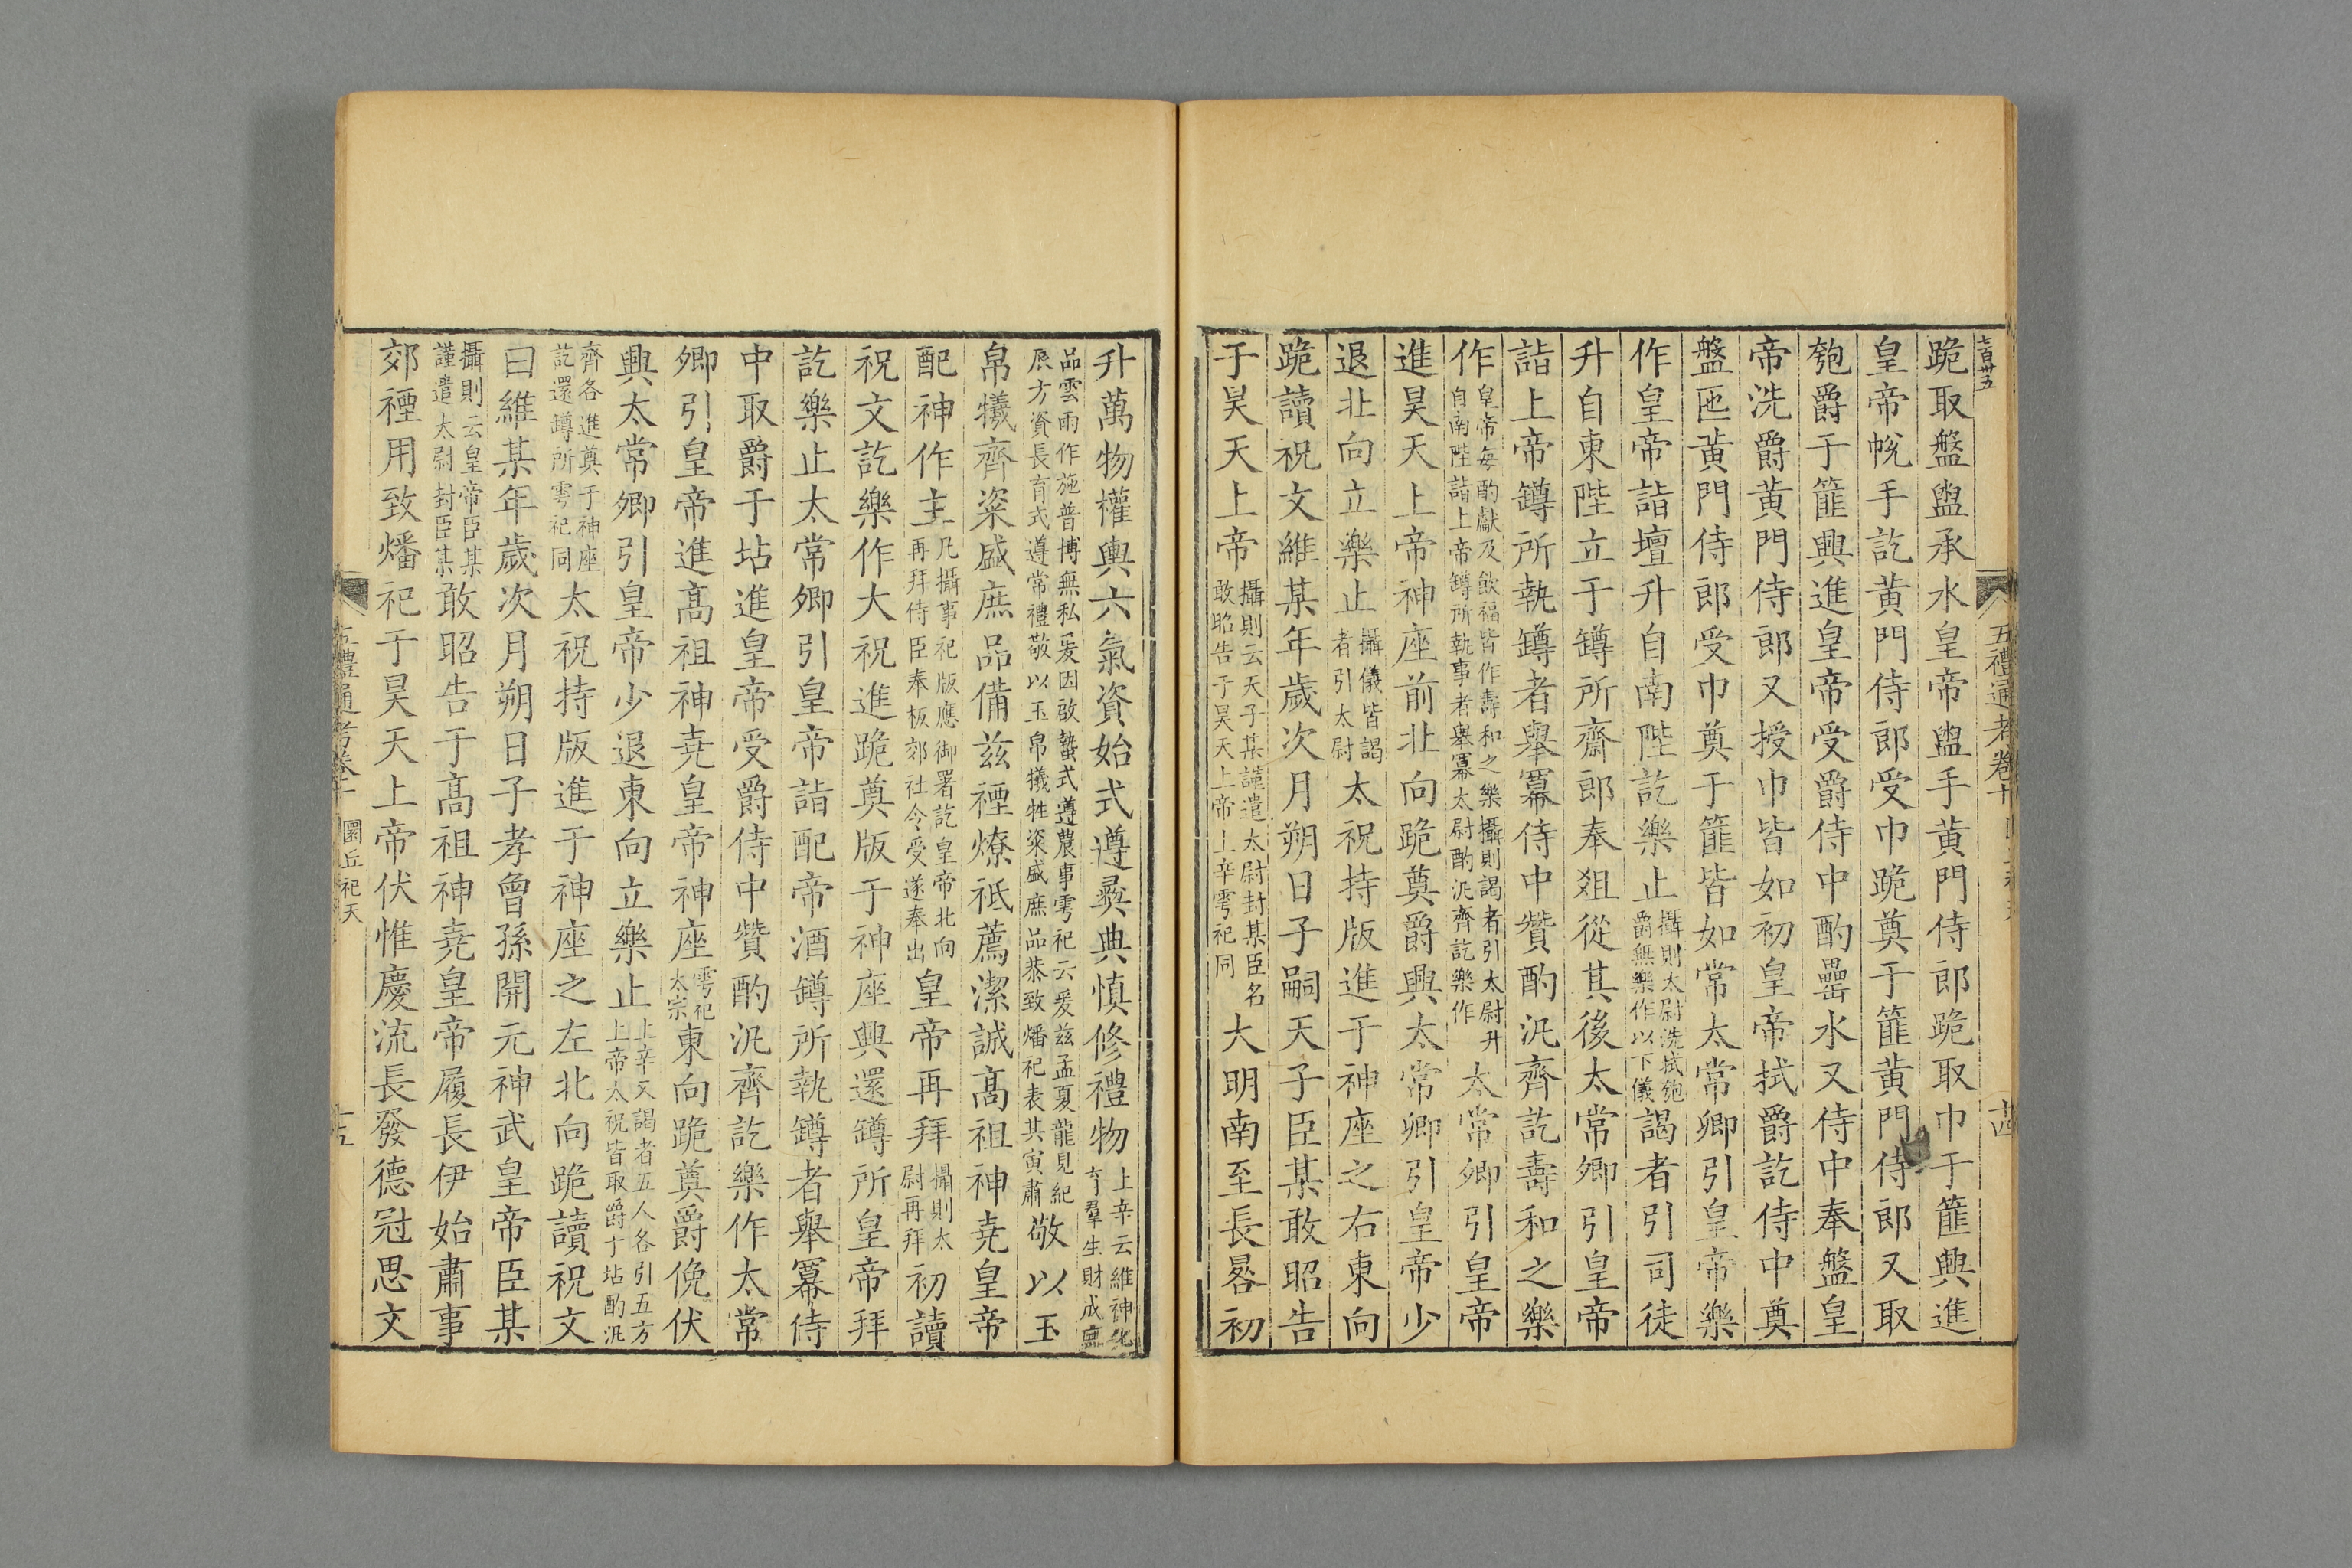 七百卅五
五禮通考卷十
跪取盤盥承水皇帝盥手黃門侍郎跪取巾于篚興進
皇帝帨手訖黃門侍郎受巾跪奠于篚黃門侍郎又取
匏爵于篚興進皇帝受爵侍中酌罍水又侍中奉盤皇
帝洗爵黃門侍郎又授巾皆如初皇帝拭爵訖侍中奠
盤匜黃門侍郎受巾奠于篚皆如常太常卿引皇帝樂
作皇帝詣壇升自南陛訖樂止攝則太尉洗拭匏爵無樂作以下儀謁者引司徒
升自東陛立于罇所齋郎奉俎從其後太常卿引皇帝
詣上帝罇所執罇者舉冪侍中贊酌汎齊訖壽和之樂
作皇帝每酌獻及飲福皆作壽和之樂攝則謁者引太尉升自南陛詣上帝罇所執事者舉冪太尉酌汎齊訖樂作太常卿引皇帝
進昊天上帝神座前北向跪奠爵興太常卿引皇帝少
退北向立樂止攝儀皆謁者引太尉太祝持版進于神座之右東向
跪讀祝文維某年歲次月朔日子嗣天子臣某敢昭告
于昊天上帝攝則云天子某謹遣太尉封某臣名敢昭告于昊天上帝上辛雩祀同大明南至長晷初
升萬物權輿六氣資始式遵彝典慎修禮物上辛云維神化育羣生財成庶
品雲雨作施普博無私爰因啟蟄式遵農事雩祀云爰茲孟夏龍見紀辰方資長育式遵常禮敬以玉帛犧牲粢盛庶品恭致燔祀表其寅肅敬以玉
帛犧齊粢盛庶品備茲禋燎祗薦潔誠高祖神堯皇帝
配神作主凡攝事祀版應御署訖皇帝北向再拜侍臣奉板郊社令受遂奉出皇帝再拜攝則太尉再拜初讀
祝文訖樂作大祝進跪奠版于神座興還罇所皇帝拜
訖樂止太常卿引皇帝詣配帝酒罇所執罇者舉冪侍
中取爵于坫進皇帝受爵侍中贊酌汎齊訖樂作太常
卿引皇帝進高祖神堯皇帝神座雩祀太宗東向跪奠爵俛伏
興太常卿引皇帝少退東向立樂止上辛又謁者五人各引五方上帝太祝皆取爵于坫酌汎
齊各進奠于神座訖還罇所雩祀同太祝持版進于神座之左北向跪讀祝文
曰維某年歲次月朔日子孝曾孫開元神武皇帝臣某
攝則云皇帝臣某謹遣太尉封臣某敢昭告于高祖神堯皇帝履長伊始肅事
郊禋用致燔祀于昊天上帝伏惟慶流長發德冠思文
圜丘祀天